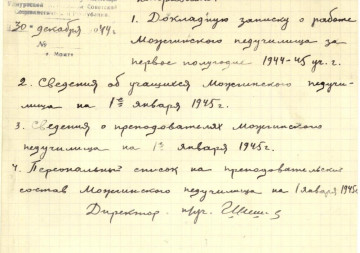 30 декабря 1944 г.
№
г. Можга
1. Докладную записку о работе
Можгинского педучилища за
первое полугодие 1944-45 уч. г.
2. Сведения об учащихся Можгинского педучи-
лища на 1ое января 1945 г.
3. Сведения о преподавателях Можгинского
педучилища на 1е января 1945 г.
4. Персональный список на преподавательский
состав Можгинского педучилища на 1 января 1945г
Директор п/уч.